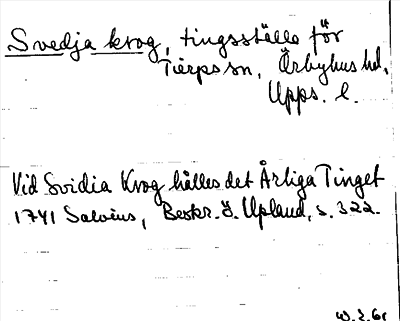 Svedja krog, tingsställe för
Tierps sn, Örbyhus hd,
Upps. l.
Vid Svidia Krog hålles det Årliga Tinget
1741 Salvius, Beskr. ö. Upland, s. 322.